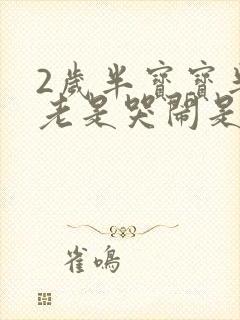 2歲半寶寶
老是哭鬧是
雀鳴